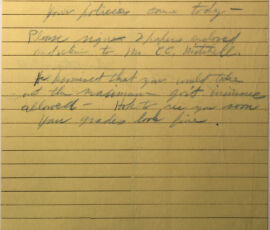 Your policies came today —
Please sign 2 papers enclosed
and return to Mr. CC. Mitchell.
I promised that you would take
out the maximum gov't insurance
allowed — Hope to see you soon
Your grades look fine.